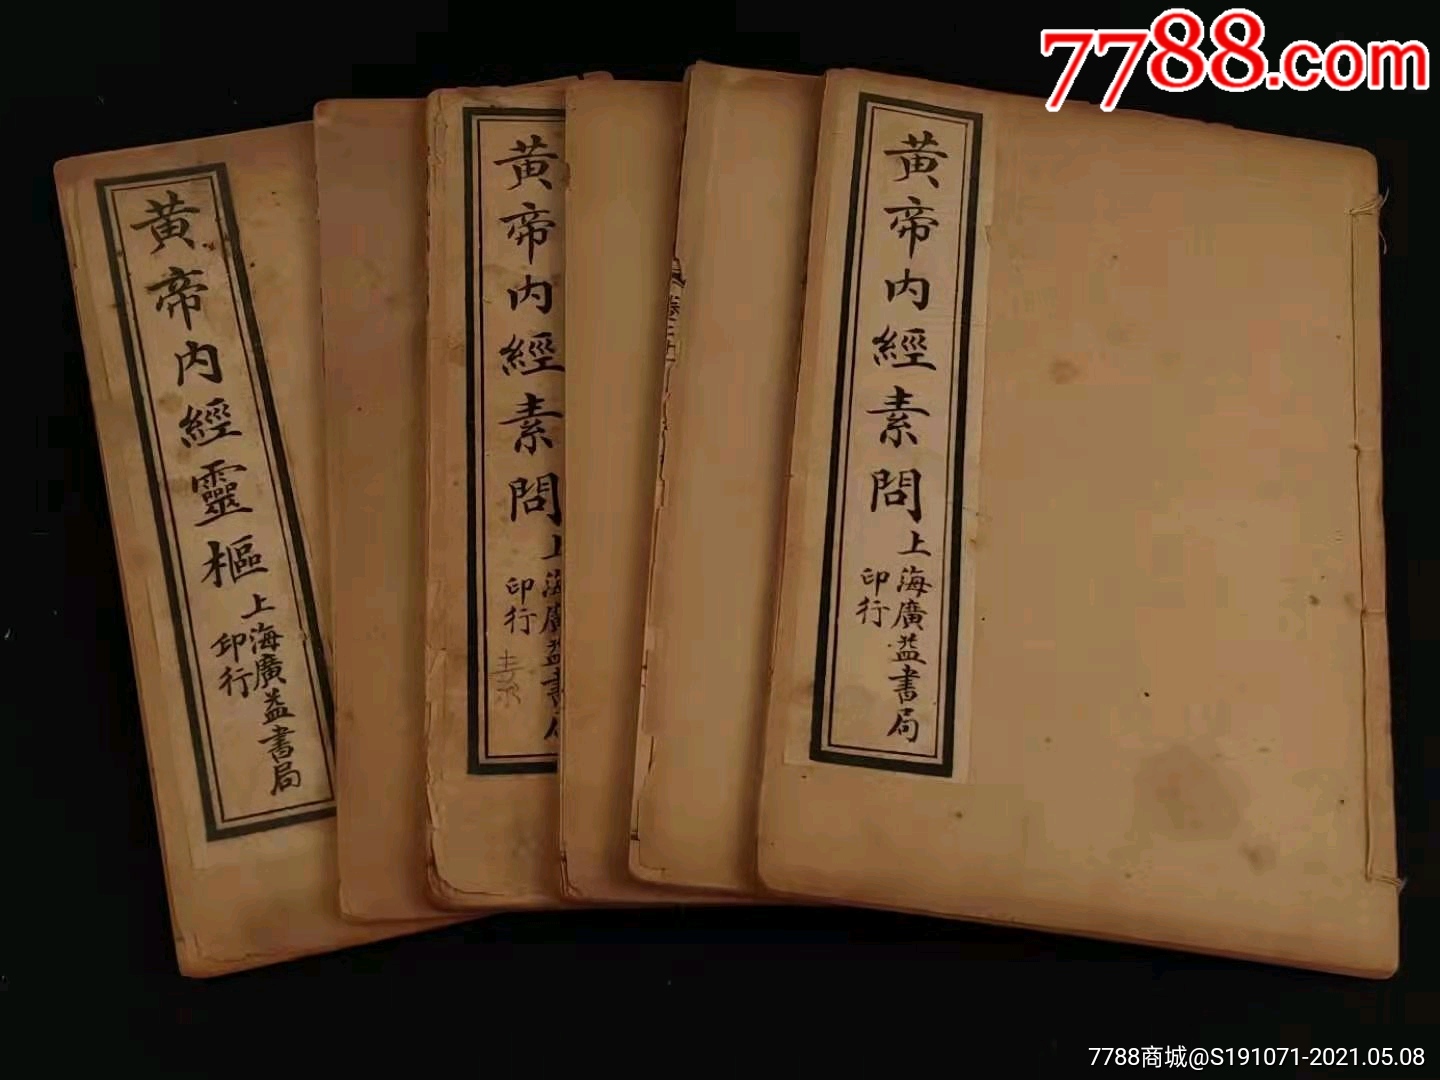 7788.com
黄帝内經素問
上海廣益書局
印行
黄帝内經素問
上海廣益書局
印行
黄帝内經靈樞
上海廣益書局
印行
7788商城@S191071-2021.05.08